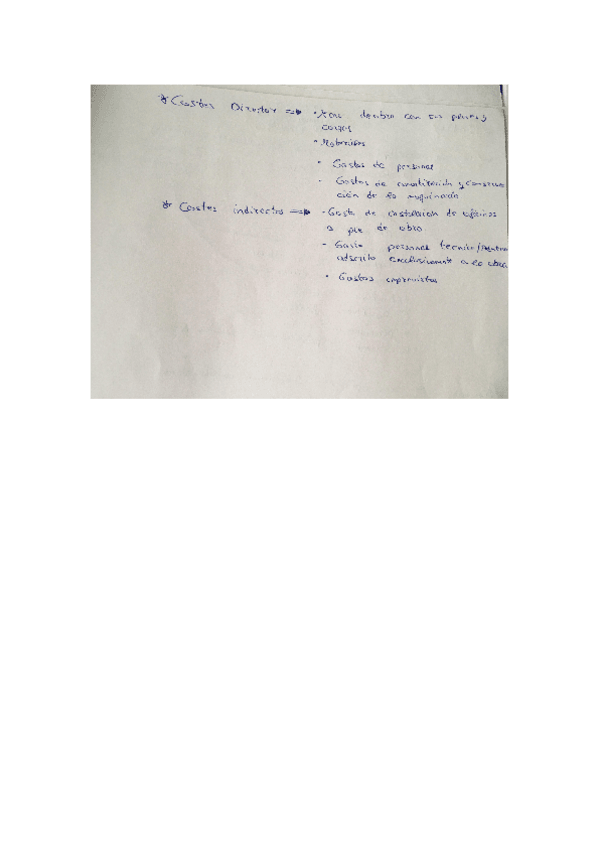 * Costes Directos => · Mano de obra con sus pluses y
cargas
· Materiales
· Gastos de personal
· Gastos de amortización y conserva
ción de la maquinaria
* Costes indirectos => · Gasto de instalación de oficinas
a pie de obra
· Gasto personal tecnico/
adscrito exclusivamente a la obra
· Gastos imprevistos